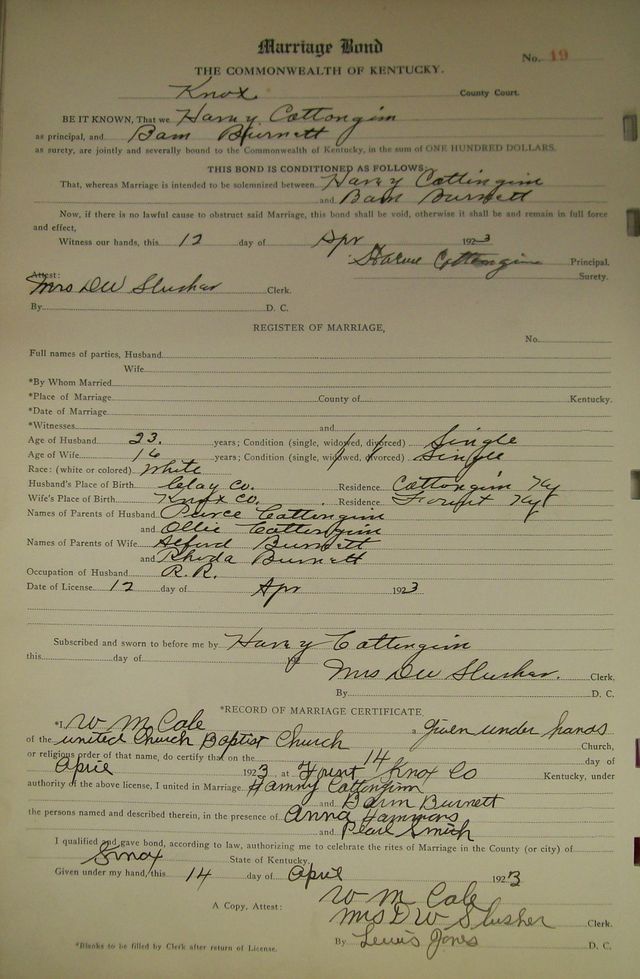 Marriage Bond
No. 19
THE COMMONWEALTH OF KENTUCKY.
Knox County Court.
BE IT KNOWN, That we Harvy Cottongim
as principal, and Bam Burnett
as surety, are jointly and severally bound to the Commonwealth of Kentucky, in the sum of ONE HUNDRED DOLLARS.
THIS BOND IS CONDITIONED AS FOLLOWS:
That, whereas Marriage is intended to be solemnized between Harvy Cottingim
and Bam Burnett
Now, if there is no lawful cause to obstruct said Marriage, this bond shall be void, otherwise it shall be and remain in full force
and effect,
Witness our hands, this 12 day of Apr 1923
Harve Cottongim Principal.
Surety.
Attest:
Mrs DW Slusher Clerk.
By D. C.
REGISTER OF MARRIAGE,
No.
Full names of parties, Husband
Wife
*By Whom Married
*Place of Marriage County of Kentucky.
*Date of Marriage
*Witnesses and
Age of Husband 23. years; Condition (single, widowed, divorced) Single
Age of Wife 16 years; Condition (single, widowed, divorced) Single
Race: (white or colored) White
Husband's Place of Birth Clay Co. Residence Cottongim Ky
Wife's Place of Birth Knox Co. Residence Fount Ky
Names of Parents of Husband Pierce Cottingim
and Ollie Cottingim
Names of Parents of Wife Alford Burnett
and Rhoda Burnett
Occupation of Husband R.R.
Date of License 12 day of Apr 1923
Subscribed and sworn to before me by Harvy Cottingim
this day of
Mrs DW Slusher. Clerk,
By D. C.
*RECORD OF MARRIAGE CERTIFICATE
*I, W M Cole a Given under hands
of the united Church Baptist Church Church,
or religious order of that name, do certify that on the 14 day of
April 1923 at Fount Knox Co Kentucky, under
authority of the above license, I united in Marriage Cottongim
and Burnett
the persons named and described therein, in the presence of Anna Hammons
and Pearl Smith
I qualified and gave bond, according to law, authorizing me to celebrate the rites of Marriage in the County (or city) of
Knox State of Kentucky.
Given under my hand, this 14 day of April 1923
W M Cole
A Copy, Attest: Mrs D W Slusher Clerk.
By Lewis Jones D. C.
*Blanks to be filled by Clerk after return of License.